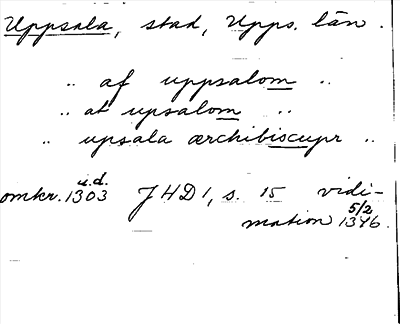 Uppsala, stad, Upps. län.
" af uppsalom "
" at upsalom "
" upsala ærchibiscupr "
u.d.
omkr. 1303 JHD 1, s. 15 vidi-
5/2
mation 1346.